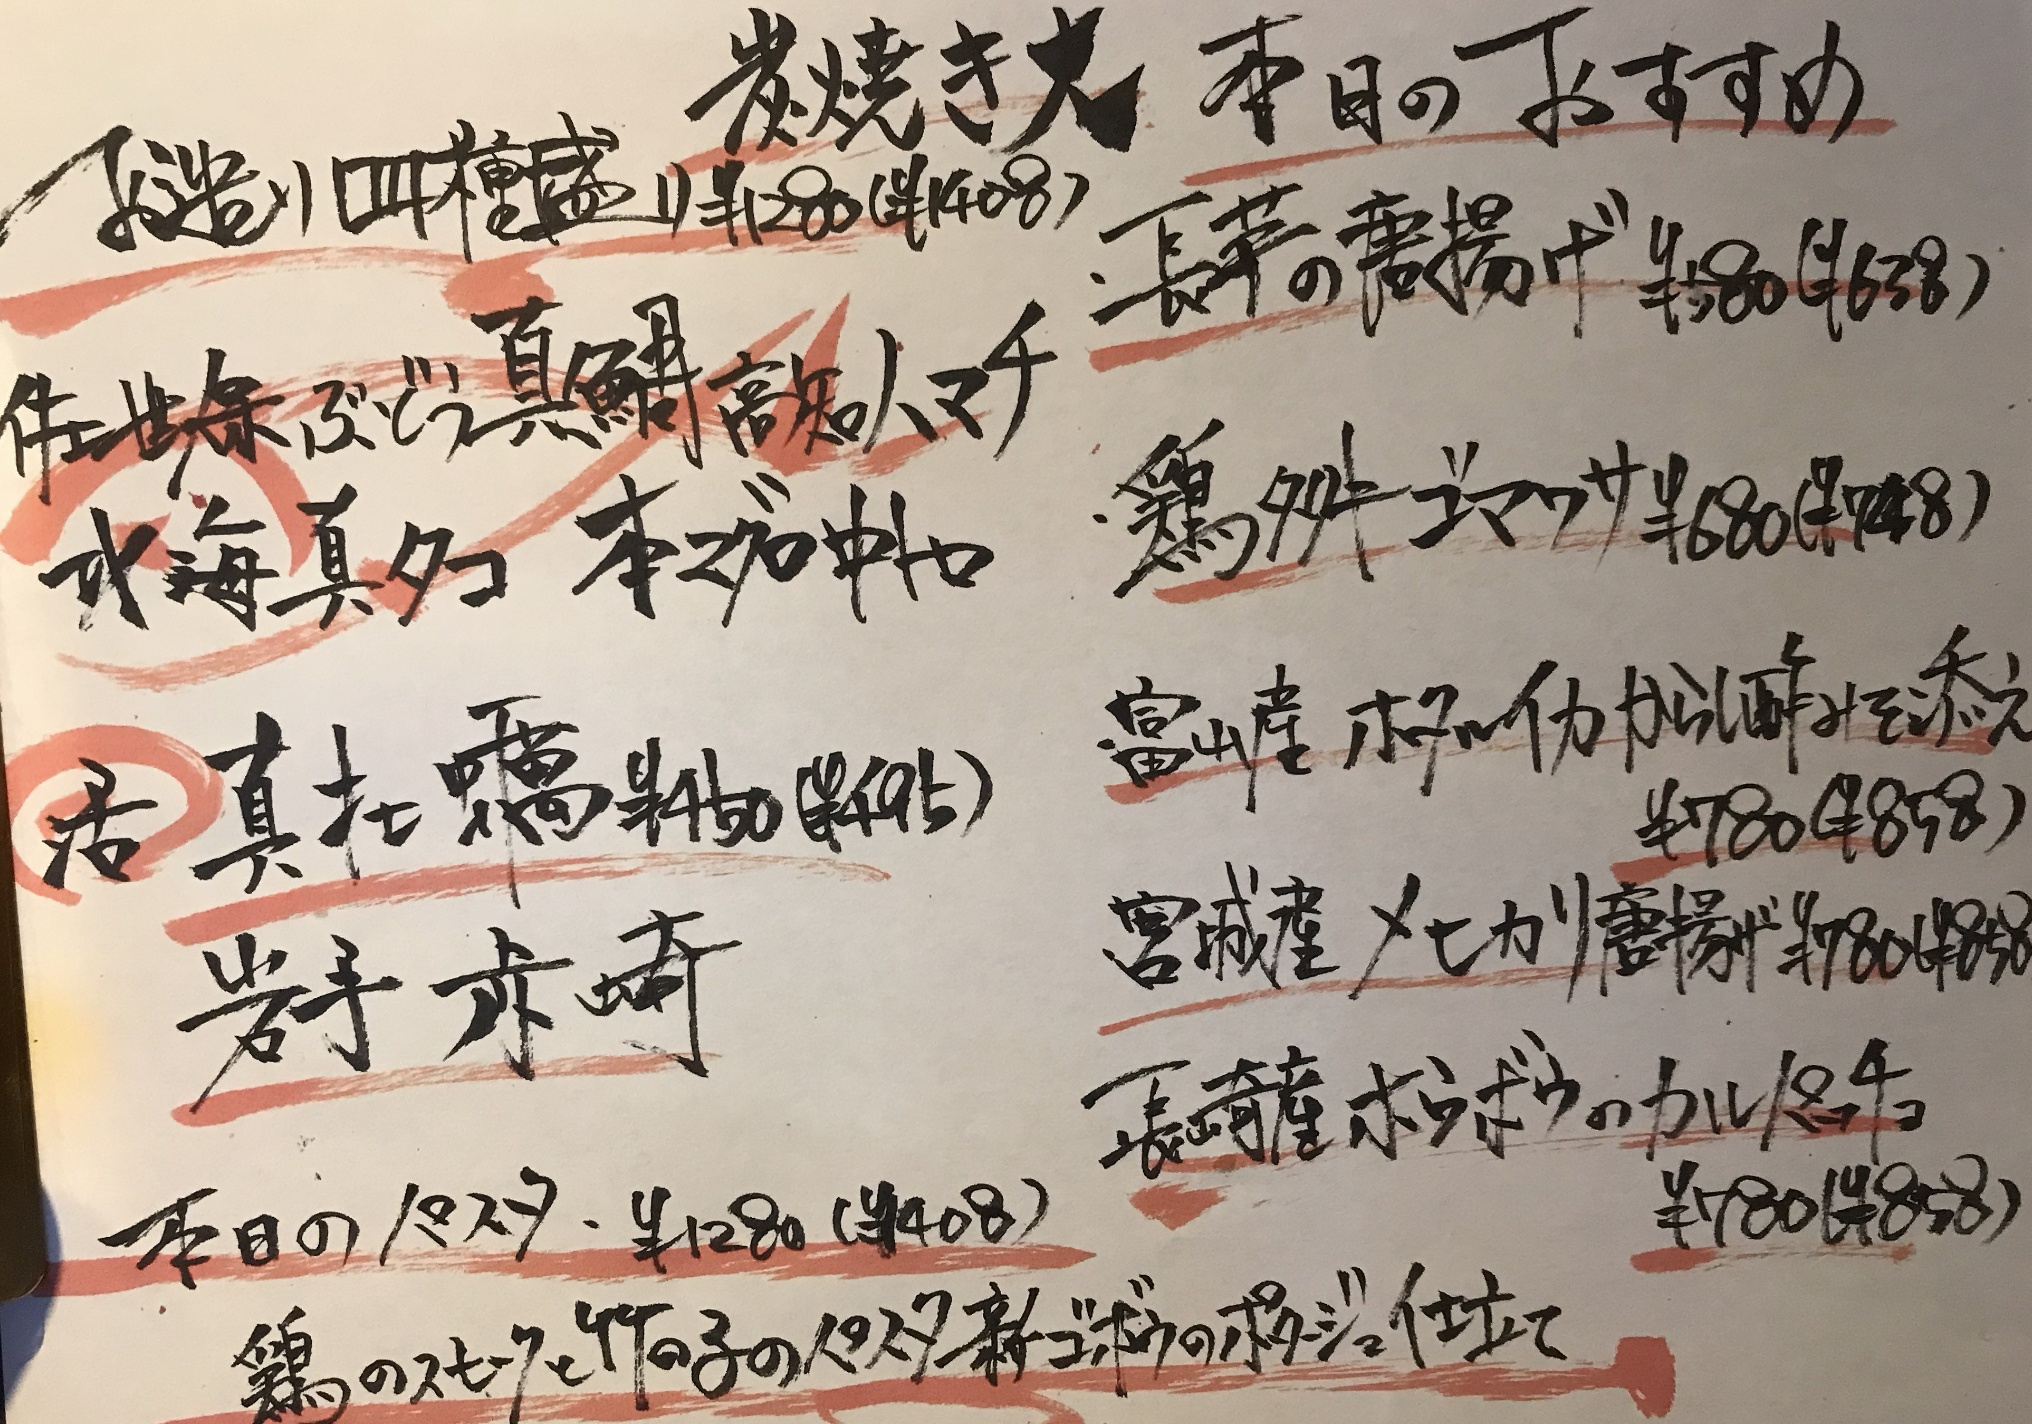 炭焼き大 本日のおすすめ
お造り四種盛り ¥1280(¥1408)
佐世保ぶどう真鯛 高知ハマチ
北海真タコ 本マグロ中トロ
活 真牡蠣 ¥450(¥495)
岩手 赤崎
本日のパスタ・¥1280(¥1408)
鶏のスモークと竹の子のパスタ 新ゴボウのポタージュ仕立て
・長芋の唐揚げ ¥580(¥638)
・鶏タタキ ゴマウサ ¥680(¥748)
・富山産 ホタルイカ からし酢みそ添え
¥780(¥858)
宮城産 メヒカリ唐揚げ ¥780(¥858
長崎産ホウボウのカルパッチョ
¥780(¥858)